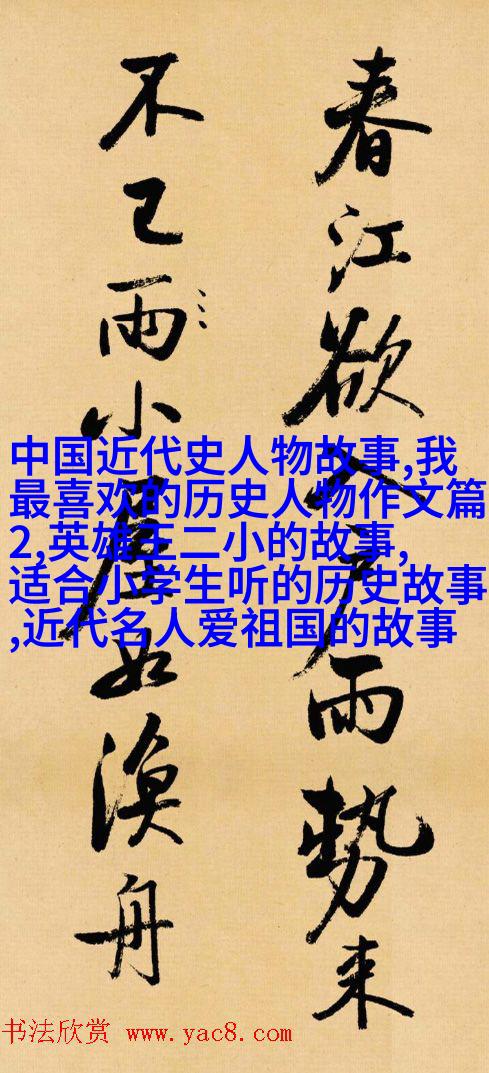 春江欲入户雨勢来
不已雨小屋如漁舟
中国近代史人物故事,我
最喜欢的历史人物作文篇
2,英雄王二小的故事,
适合小学生听的历史故事
,近代名人爱祖国的故事
书法欣赏 www.yac8.com